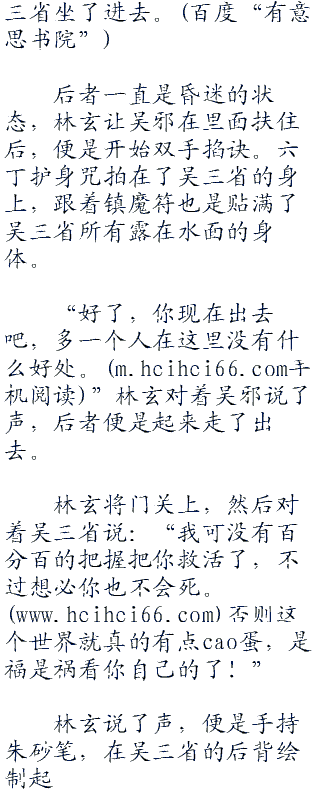 三省坐了进去。(百度“有意
思书院”)
后者一直是昏迷的状
态，林玄让吴邪在里面扶住
后，便是开始双手掐诀。六
丁护身咒拍在了吴三省的身
上，跟着镇魔符也是贴满了
吴三省所有露在水面的身
体。
“好了，你现在出去
吧，多一个人在这里没有什
么好处。(m.hcihci66.com手
机阅读)”林玄对着吴邪说了
声，后者便是起来走了出
去。
林玄将门关上，然后对
着吴三省说：“我可没有百
分百的把握把你救活了，不
过想必你也不会死。
(www.hcihci66.com)否则这
个世界就真的有点cao蛋，是
福是祸看你自己的了！”
林玄说了声，便是手持
朱砂笔，在吴三省的后背绘
制起